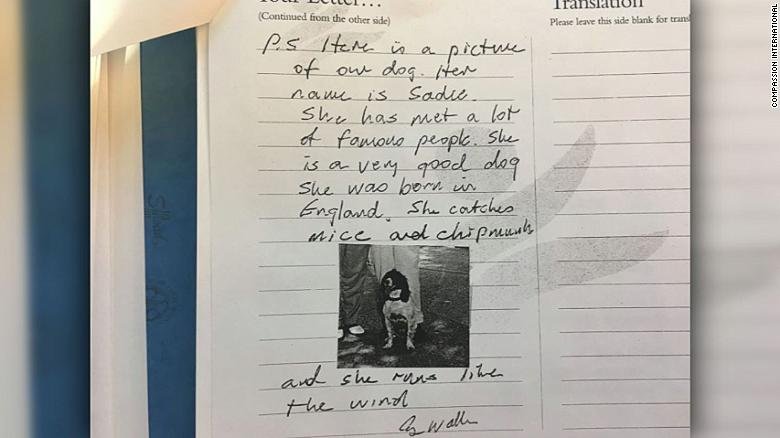 Your Letter...
Translation
(Continued from the other side)
Please leave this side blank for transl
P.S Here is a picture
of our dog. Her
name is Sadie.
She has met a lot
of famous people. She
is a very good dog
She was born in
England. She catches
mice and chipmunks
and she runs like
the wind
G Walker
COMPASSION INTERNATIONAL